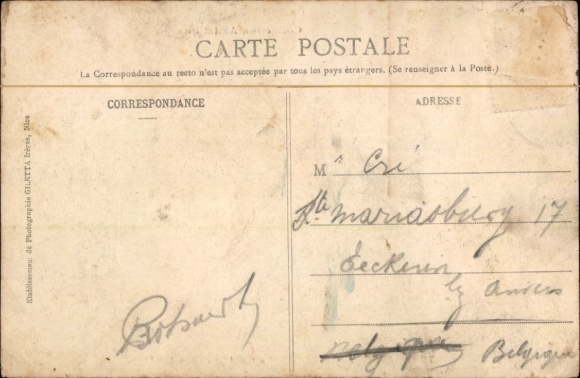 CARTE POSTALE
La Correspondance au recto n'est pas acceptée par tous les pays étrangers. (Se renseigner à la Poste.)
CORRESPONDANCE
ADRESSE
Etablissement de Photographie GILETTA frères, Nice
M
Mariasburg 17
Eeckeren
lz Anvers
Belgique